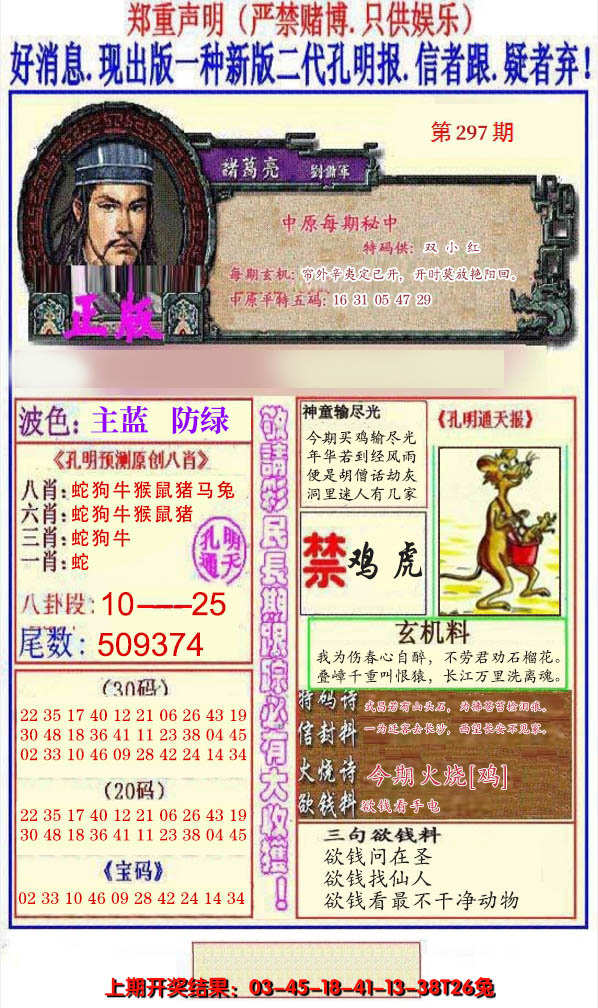 郑重声明（严禁赌博.只供娱乐）
好消息.现出版一种新版二代孔明报.信者跟.疑者弃！
第297期
諸葛亮 劉備軍
中原每期秘中
特码供：双 小 红
每期玄机：帘外辛夷定已开，开时莫放艳阳回。
中原平特五码：16 31 05 47 29
正版
波色：主蓝 防绿
《孔明预测原创八肖》
八肖：蛇狗牛猴鼠猪马兔
六肖：蛇狗牛猴鼠猪
三肖：蛇狗牛
一肖：蛇
孔明通天
八卦段：10——25
尾数：509374
（30码）
22 35 17 40 12 21 06 26 43 19
30 48 18 36 41 11 23 38 04 45
02 33 10 46 09 28 42 24 14 34
（20码）
22 35 17 40 12 21 06 26 43 19
30 48 18 36 41 11 23 38 04 45
《宝码》
02 33 10 46 09 28 42 24 14 34
敬請彩民長期跟踪必有大收獲！
神童输尽光
今期买鸡输尽光
年华若到经风雨
便是胡僧话劫灰
洞里迷人有几家
《孔明通天报》
禁 鸡 虎
玄机料
我为伤春心自醉，不劳君劝石榴花。
叠嶂千重叫恨猿，长江万里洗离魂。
特码诗 武昌若有山头石，为拂苍苔检泪痕。
信封料 一为迁客去长沙，西望长安不见家。
火烧诗 今期火烧[鸡]
欲钱料 欲钱看手电
三句欲钱料
欲钱问在圣
欲钱找仙人
欲钱看最不干净动物
上期开奖结果：03-45-18-41-13-38T26兔